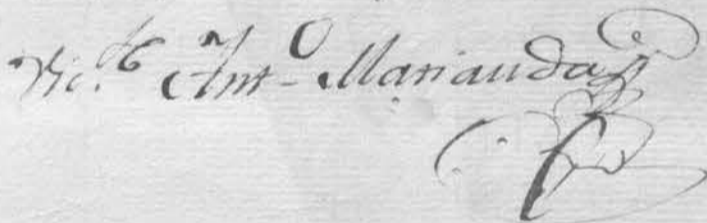 Vic.te Ant.o Mariauda